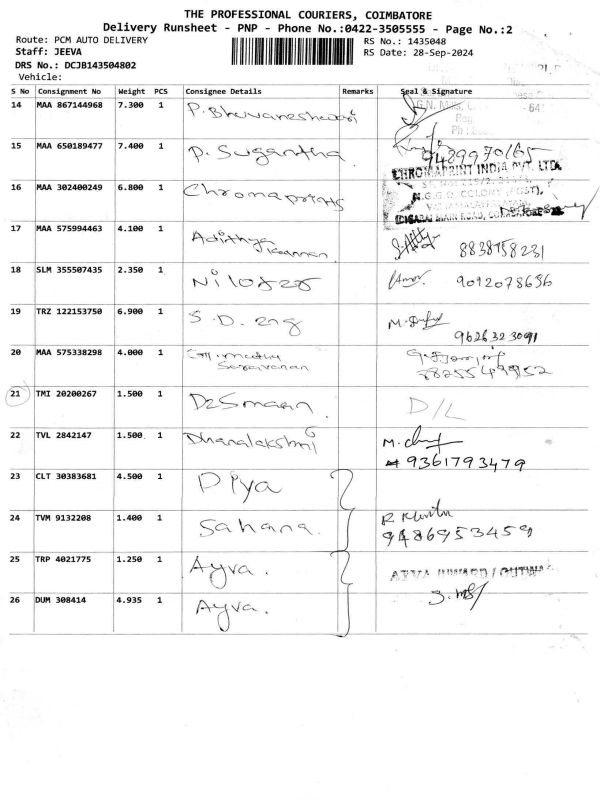 THE PROFESSIONAL COURIERS, COIMBATORE
Delivery Runsheet - PNP - Phone No.:0422-3505555 - Page No.:2
Route: PCM AUTO DELIVERY
RS No.: 1435048
Staff: JEEVA
RS Date: 28-Sep-2024
DRS No.: DCJB143504802
Vehicle:
S No Consignment No Weight PCS Consignee Details Remarks Seal & Signature
14 MAA 867144968 7.300 1 P. Bhuvaneshwari
15 MAA 650189477 7.400 1 P. Sugantha 9489970165
CHROMAPRINT INDIA PVT. LTD.
16 MAA 302400249 6.800 1 Chromaprints
N.G.G.O. COLONY (POST),
MAIN ROAD,
17 MAA 575994463 4.100 1 Adithya Kannan 8838758231
18 SLM 355507435 2.350 1 Nilofer 9092078636
19 TRZ 122153750 6.900 1 S.D. eng M.
9626323091
20 MAA 575338298 4.000 1
Saravanan
21 TMI 20200267 1.500 1 D/L
22 TVL 2842147 1.500 1 Dhanalakshmi M.
9361793479
23 CLT 30383681 4.500 1 Diya
24 TVM 9132208 1.400 1 Sahana. R
9486953459
25 TRP 4021775 1.250 1 Ayva. AYVA INWARD / OUTWARD
26 DUM 308414 4.935 1 Ayva.